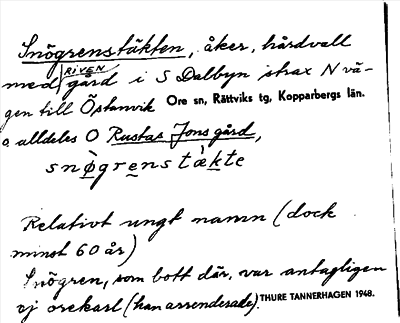 Snögrenstäkten, åker, hårdvall
med RIVEN gård i S Dalbyn strax N vä-
gen till Östanvik Ore sn, Rättviks tg, Kopparbergs län.
o alldeles O Rustas Jons gård,
snø̀grenstǽkte
Relativt ungt namn (dock
minst 60 år)
Snögren, som bott där, var antagligen
ej orekarl (han arrenderade). THURE TANNERHAGEN 1948.